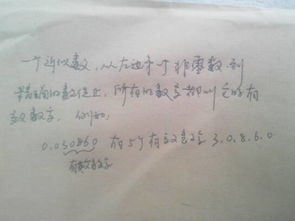 一个近似数，从左边第一个非零数，到
最后面的数位止，所有的数字都叫它的有
效数字，例如：
0.030860 有5个有效数字 3.0.8.6.0
有效数字